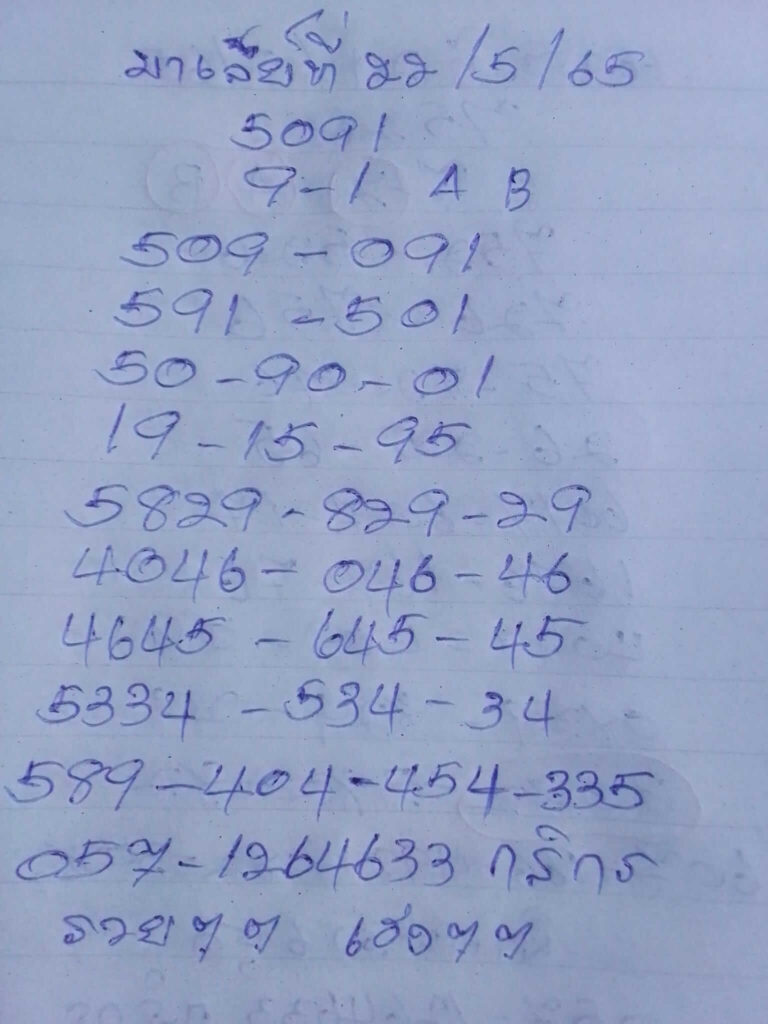 มาเลย์ที่ 22/5/65
5091
9-1 A B
509-091
591-501
50-90-01
19-15-95
5829-829-29
4046-046-46
4645-645-45
5334-534-34
589-404-454-335
057-1264633 กสิกร
รวยๆๆ เฮงๆๆ